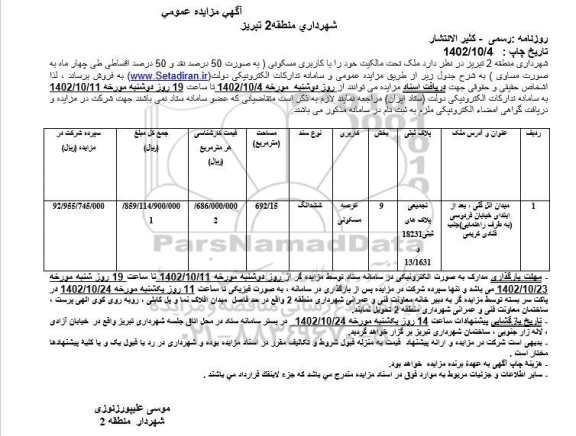 آگهي مزايده عمومي
شهرداري منطقه2 تبريز
روزنامه :رسمی - کثیر الانتشار
تاریخ چاپ : 1402/10/4
شهرداری منطقه 2 تبریز در نظر دارد ملک تحت مالکیت خود را با کاربری مسکونی ( به صورت 50 درصد نقد و 50 درصد اقساطی طی چهار ماه به
صورت مساوی ) به شرح جدول زیر از طریق مزایده عمومی و سامانه تدارکات الکترونیکی دولت(www.Setadiran.ir) به فروش برساند ، لذا
اشخاص حقیقی و حقوقی جهت دریافت اسناد مزایده می توانند از روز دوشنبه مورخه 1402/10/4 تا ساعت 19 روز دوشنبه مورخه 1402/10/11
به سامانه تدارکات الکترونیکی دولت (ستاد ایران) مراجعه نمایند لازم به ذکر است متقاضیانی که عضو سامانه ستاد نمی باشند جهت شرکت در مزایده و
دریافت گواهی امضاء الکترونیکی ملزم به ثبت نام در سامانه مذکور می باشند.
ردیف عنوان و آدرس ملک پلاک ثبتی بخش کاربری نوع سند مساحت (مترمربع) قیمت کارشناسی هر مترمربع (ریال) جمع کل مبلغ (ریال) سپرده شرکت در مزایده (ریال)
1 میدان ائل گلی ، بعد از ابتدای خیابان فردوسی (به طرف راهنمایی)جنب قنادی کریمی تجمیعی پلاک های ثبتی18231 و 13/1631 9 عرصه مسکونی ششدانگ 692/15 /686/000/000 2 /859/114/900/000 1 92/955/745/000
ـ مهلت بارگذاری مدارک به صورت الکترونیکی در سامانه ستاد توسط مزایده گر از روز دوشنبه مورخه 1402/10/11 تا ساعت 19 روز شنبه مورخه
1402/10/23 می باشد و تنها سپرده شرکت در مزایده پس از بارگذاری در سامانه ، به صورت فیزیکی تا ساعت 11 روز یکشنبه مورخه 1402/10/24 در
پاکت سر بسته توسط مزایده گر به دبیر خانه معاونت فنی و عمرانی شهرداری منطقه 2 واقع در حد فاصل میدان افلاک نما و پل کابلی ، روبه روی کوی الهی پرست ،
ساختمان معاونت فنی و عمرانی شهرداری منطقه 2 تحویل نمایند.
ـ تاریخ بازگشایی پیشنهادات ساعت 14 روز یکشنبه مورخه 1402/10/24 در بستر سامانه ستاد در محل اتاق جلسه شهرداری تبریز واقع در خیابان آزادی
، لاله زار جنوبی ، ساختمان شهرداری تبریز بر گزار خواهد گردید.
ـ بدیهی است شرکت در مزایده و ارائه پیشنهاد قیمت به منزله قبول شروط و تکالیف مقرر در اسناد مزایده بوده و شهرداری در رد یا قبول یک و یا کلیه پیشنهادها
مختار است .
ـ هزینه چاپ آگهی به عهدۀ برنده مزایده خواهد بود.
ـ سایر اطلاعات و جزئیات مربوط به موارد فوق در اسناد مزایده مندرج می باشد که جزء لاینفک قرارداد می باشند .
موسی علیپورزنوزی
شهردار منطقه 2
ParsNamadData